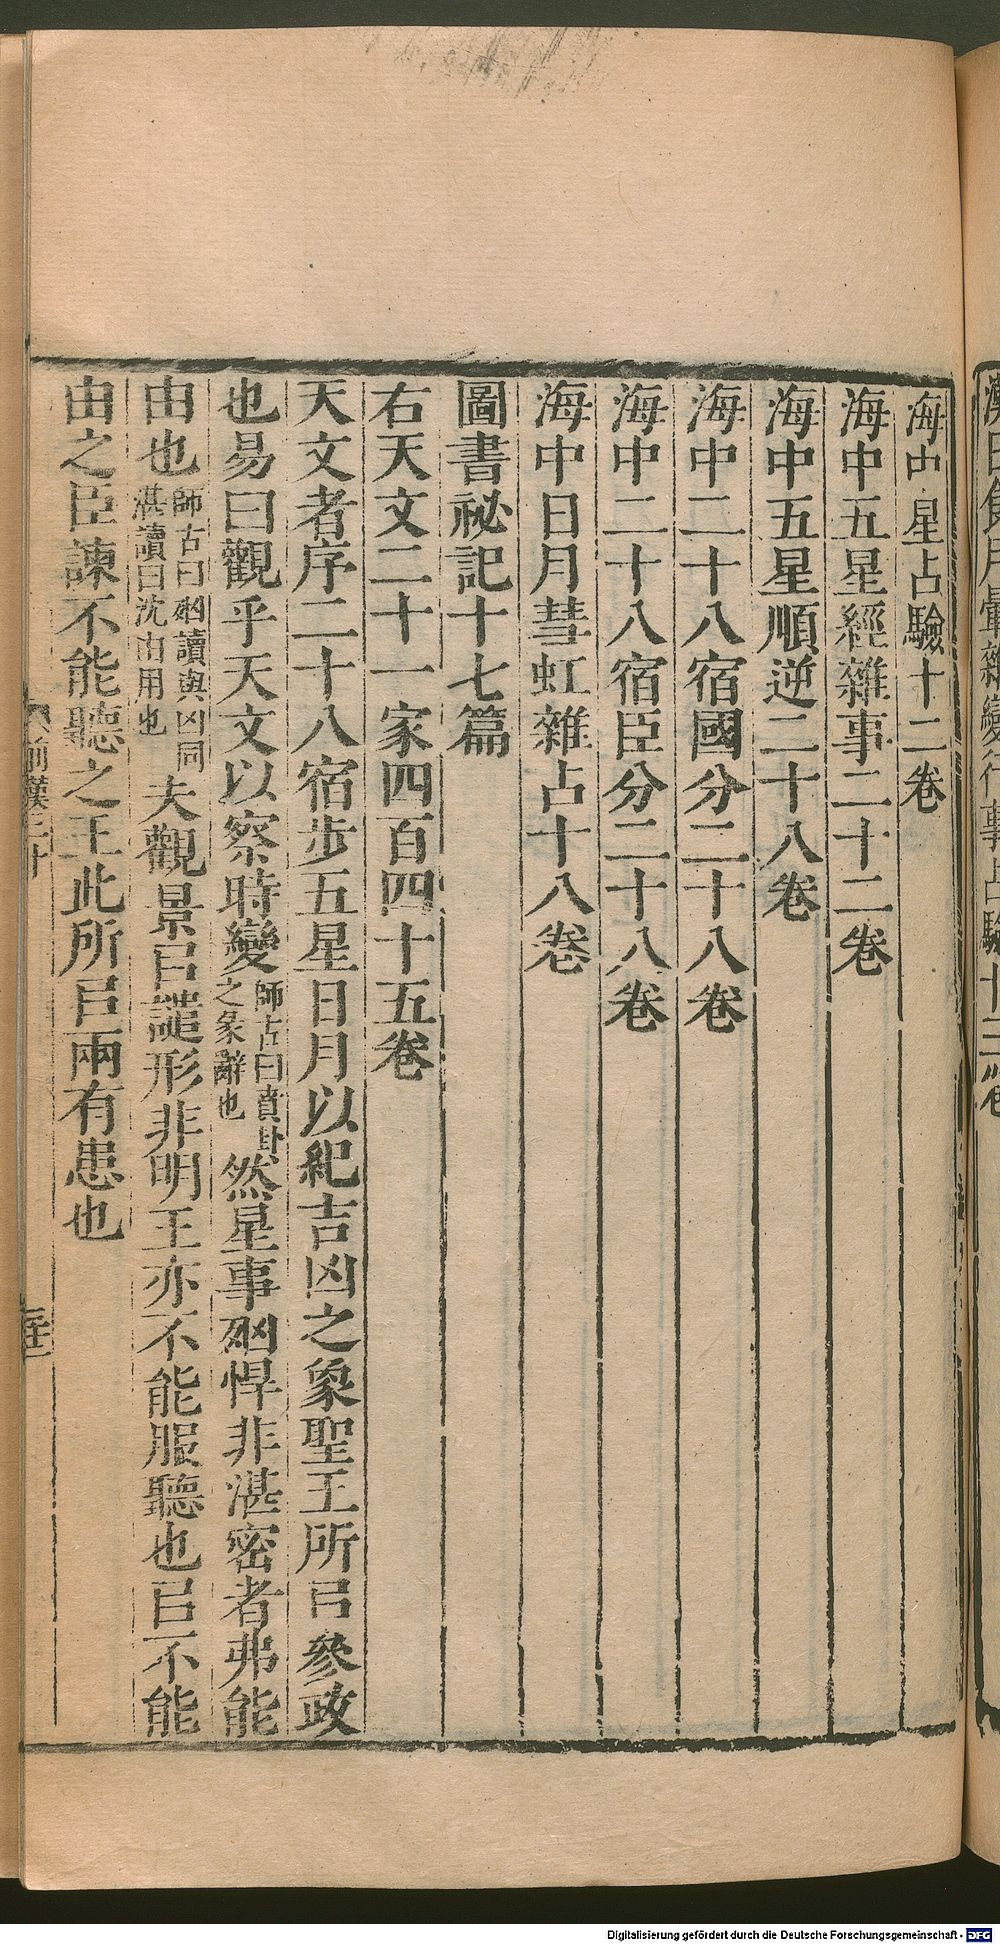 海中星占驗十二卷
海中五星經雜事二十二卷
海中五星順逆二十八卷
海中二十八宿國分二十八卷
海中二十八宿臣分二十八卷
海中日月彗虹雜占十八卷
圖書祕記十七篇
右天文二十一家四百四十五卷
天文者序二十八宿步五星日月以紀吉凶之象聖王所㠯參政
也易曰觀乎天文以察時變師古曰賁卦之彖辭也然星事㓙悍非湛密者弗能
由也師古曰㓙讀與凶同湛讀曰沈由用也夫觀景㠯譴形非明王亦不能服聽也㠯不能
由之臣諫不能聽之王此所㠯兩有患也
前漢三十
Digitalisierung gefördert durch die Deutsche Forschungsgemeinschaft - DFG